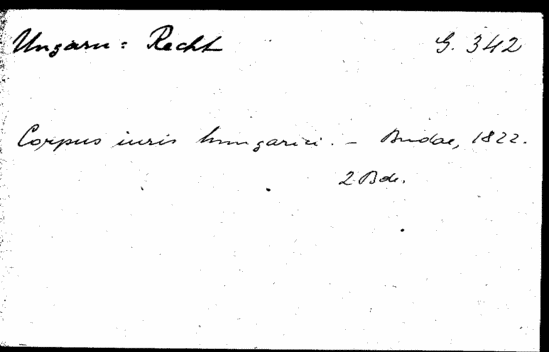 Ungarn: Recht G. 342
Corpus iuris hungarici. - Budae, 1822.
2 Bde.